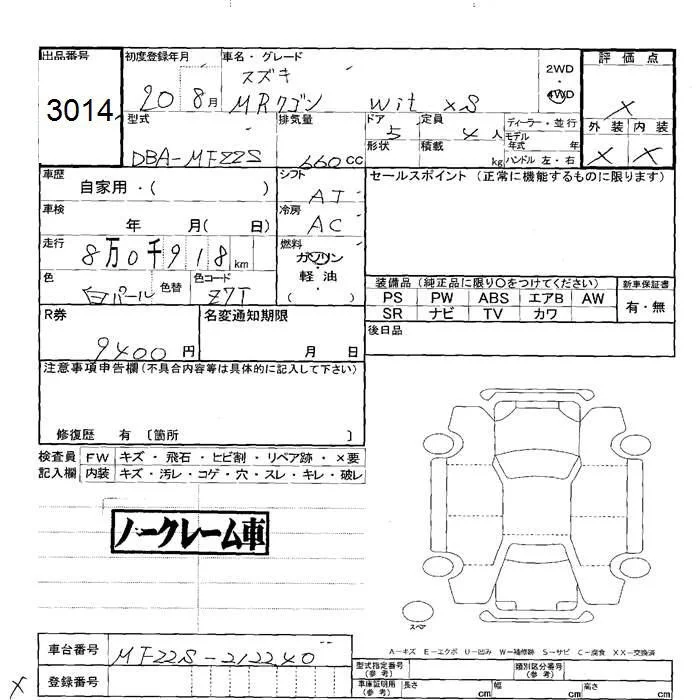 出品番号
3014
初度登録年月
20 8月
車名・グレード
スズキ
MRワゴン wit XS
2WD
・
4WD
評価点
X
外装 内装
X X
型式
DBA-MF22S
排気量
660cc
ドア 5
形状
定員 4人
積載 kg
ディーラー・並行
モデル
年式 年
ハンドル 左・右
車歴
自家用・( )
シフト
AT
セールスポイント (正常に機能するものに限ります)
車検
年 月( 日)
冷房
AC
走行
8万0千918km
燃料
ガソリン
・
軽油
( )
色
白パール
色替
色コード
Z7T
装備品 (純正品に限り○をつけてください)
PS PW ABS エアB AW
SR ナビ TV カワ
新車保証書
有・無
R券
9400円
名変通知期限
月 日
後日品
注意事項申告欄(不具合内容等は具体的に記入して下さい)
修復歴 有 〔箇所 〕
検査員
記入欄
FW キズ・飛石・ヒビ割・リペア跡・×要
内装 キズ・汚レ・コゲ・穴・スレ・キレ・破レ
ノークレーム車
スペア
A-キズ E-エクボ U-凹み W-補修跡 S-サビ C-腐食 XX-交換済
車台番号
MF22S-212240
X
登録番号
型式指定番号
(参考)
類別区分番号
(参考)
車庫証明用
(参考)
長さ cm
幅 cm
高さ cm